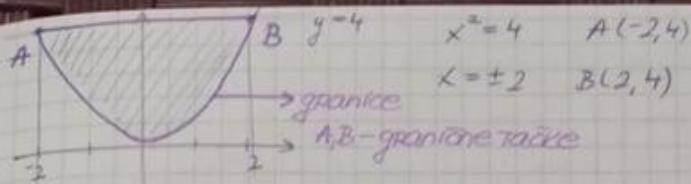 A B y=4 x²=4 A(-2,4)
x=±2 B(2,4)
granice
A,B-granične tačke
-2 2